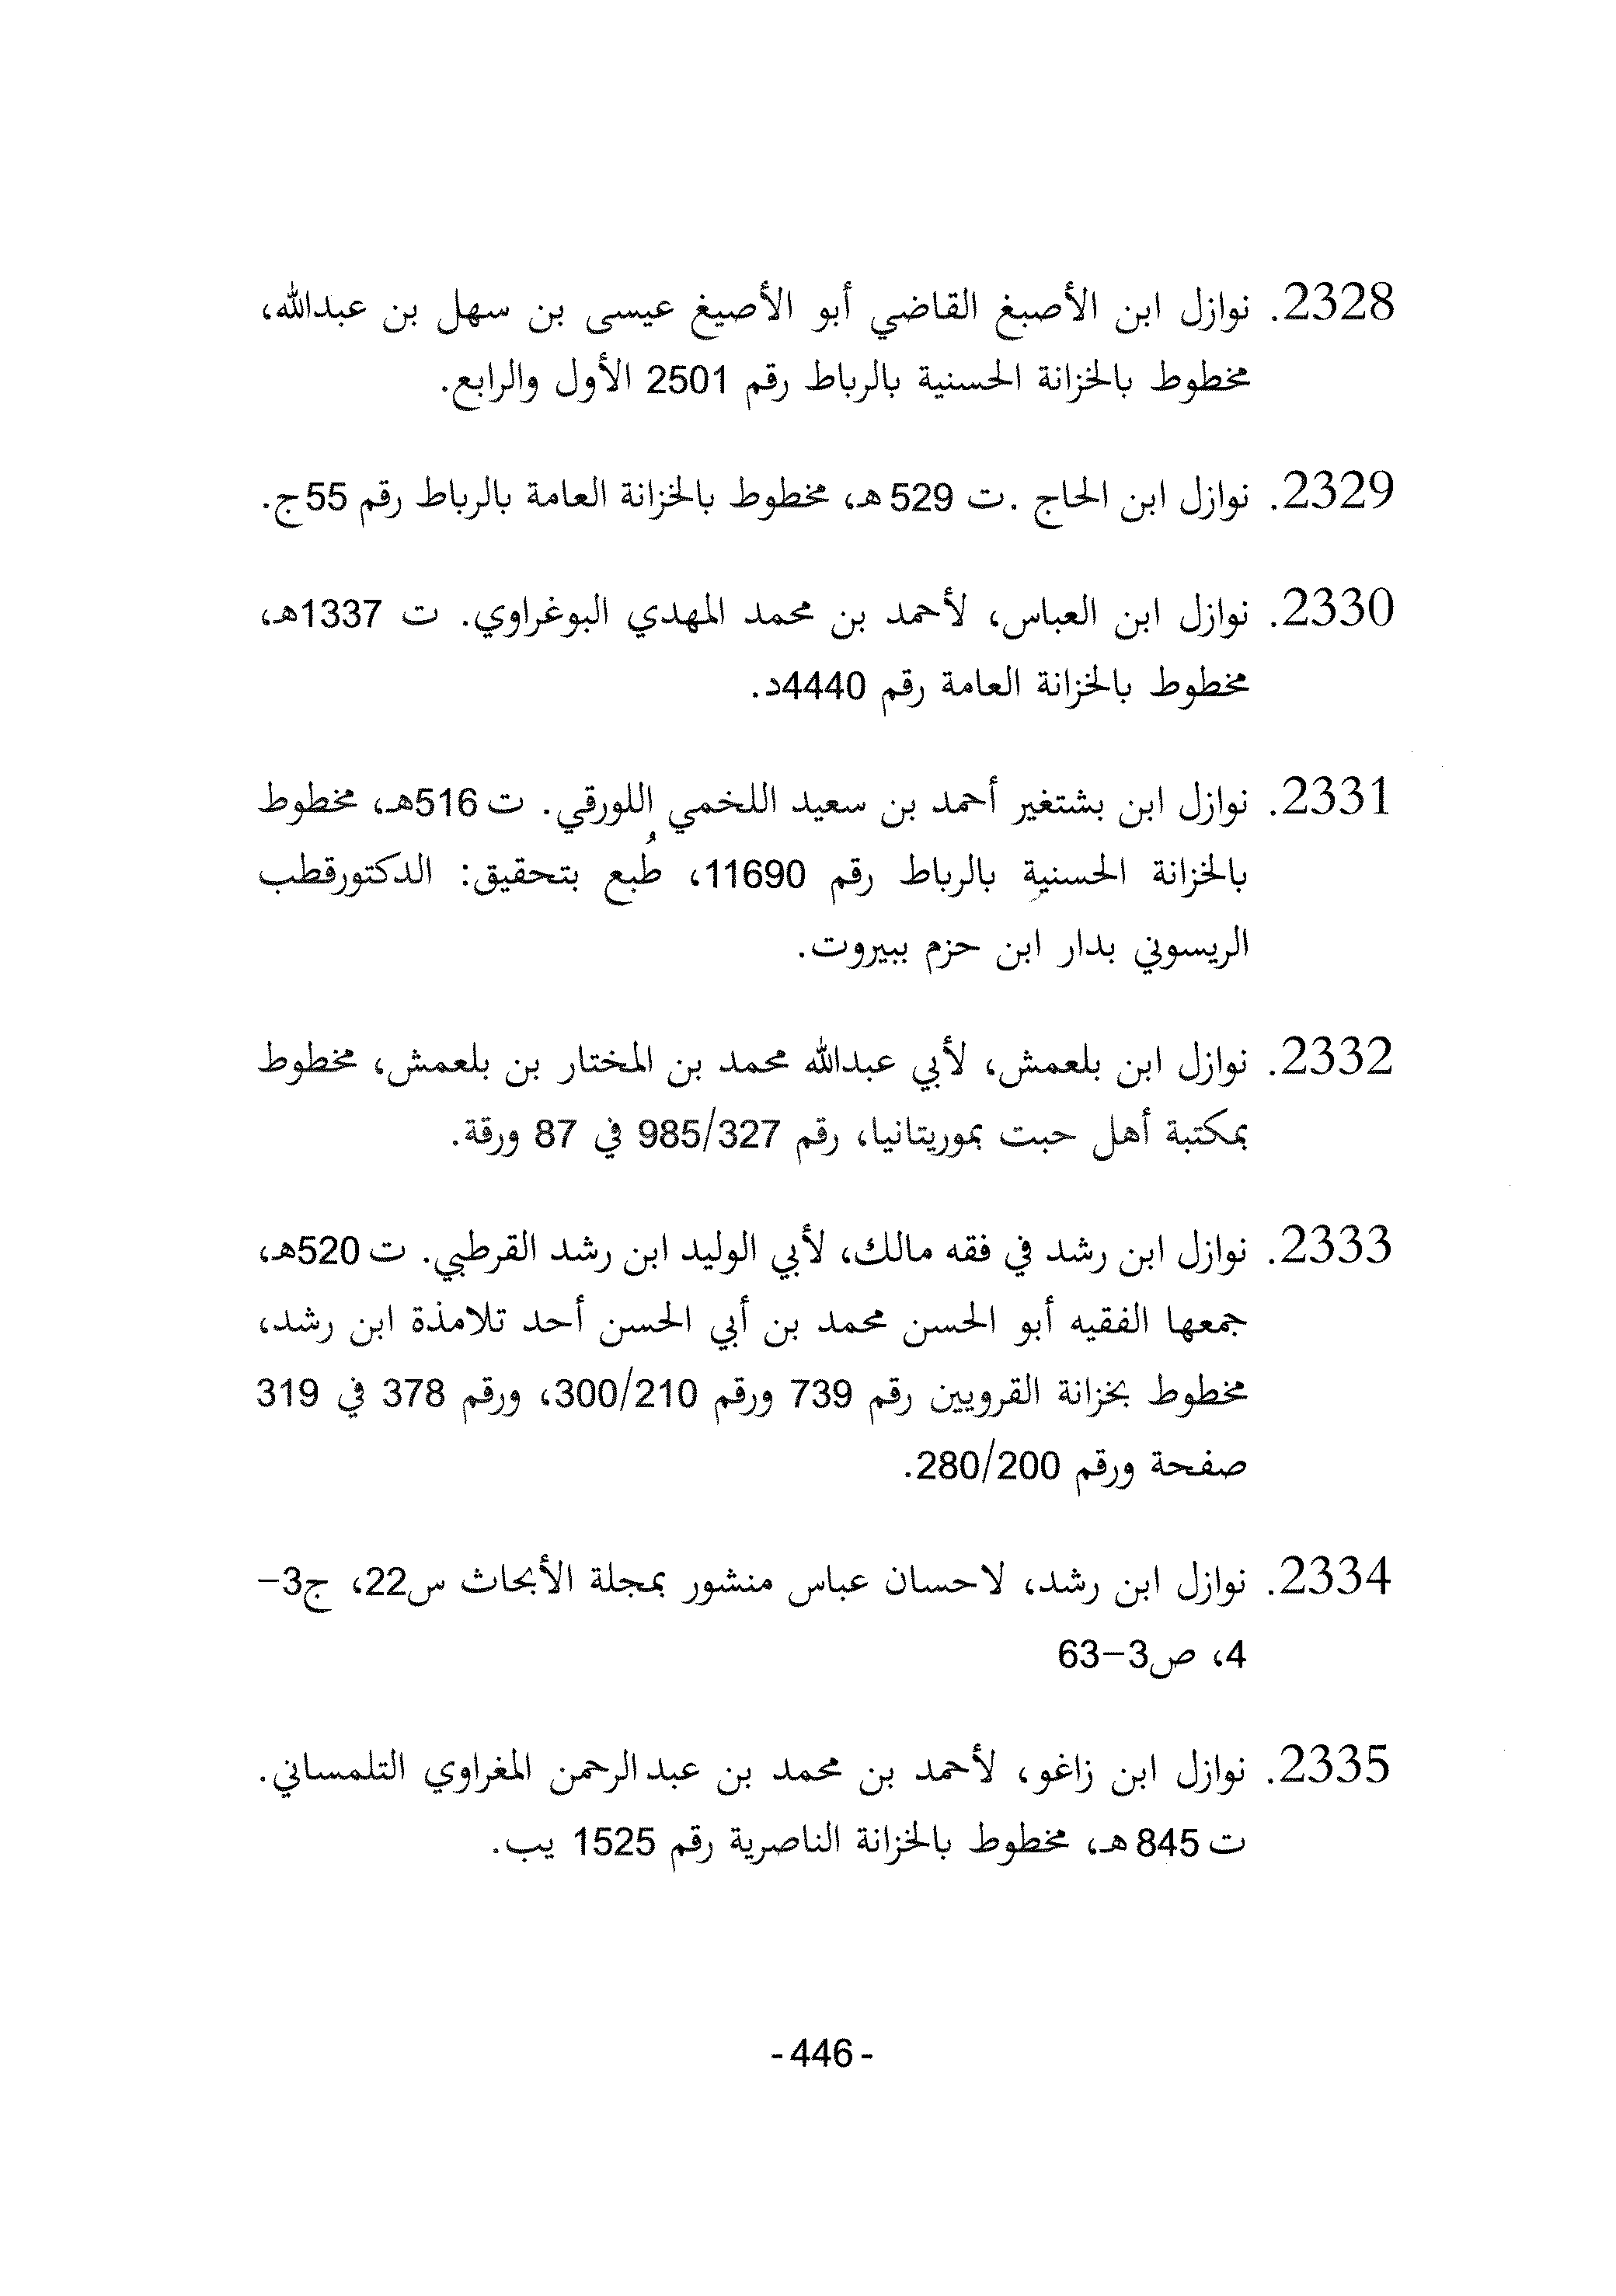 2328. نوازل ابن الأصبغ القاضي أبو الأصيغ عيسى بن سهل بن عبدالله،
مخطوط بالخزانة الحسنية بالرباط رقم 2501 الأول والرابع.
2329. نوازل ابن الحاج .ت 529هـ، مخطوط بالخزانة العامة بالرباط رقم 55ج.
2330. نوازل ابن العباس، لأحمد بن محمد المهدي البوغراوي. ت 1337هـ،
مخطوط بالخزانة العامة رقم 4440د.
2331. نوازل ابن بشتغير أحمد بن سعيد اللخمي اللورقي. ت 516هـ، مخطوط
بالخزانة الحسنية بالرباط رقم 11690، طُبع بتحقيق: الدكتورقطب
الريسوني بدار ابن حزم ببيروت.
2332. نوازل ابن بلعمش، لأبي عبدالله محمد بن المختار بن بلعمش، مخطوط
بمكتبة أهل حبت بموريتانيا، رقم 985/327 في 87 ورقة.
2333. نوازل ابن رشد في فقه مالك، لأبي الوليد ابن رشد القرطبي. ت 520هـ،
جمعها الفقيه أبو الحسن محمد بن أبي الحسن أحد تلامذة ابن رشد،
مخطوط بخزانة القرويين رقم 739 ورقم 300/210، ورقم 378 في 319
صفحة ورقم 280/200.
2334. نوازل ابن رشد، لاحسان عباس منشور بمجلة الأبحاث س22، ج3-
4، ص3-63
2335. نوازل ابن زاغو، لأحمد بن محمد بن عبدالرحمن المغراوي التلمساني.
ت 845هـ، مخطوط بالخزانة الناصرية رقم 1525 يب.
- 446 -